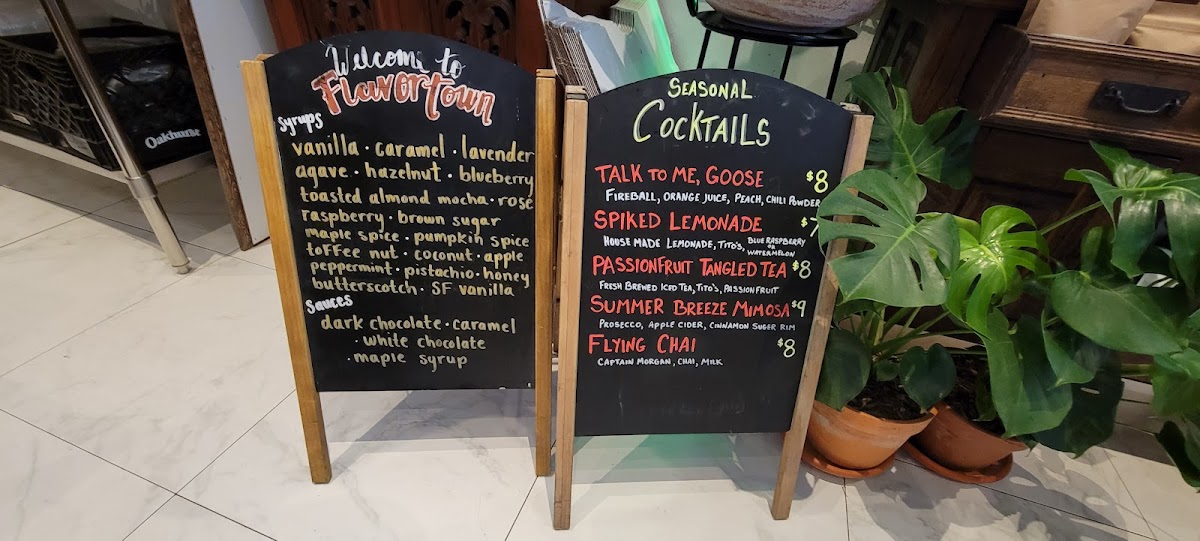 Oakhurst
Welcome to
Flavortown
Syrups
vanilla · caramel · lavender
agave · hazelnut · blueberry
toasted almond mocha · rose
raspberry · brown sugar
maple spice · pumpkin spice
toffee nut · coconut · apple
peppermint · pistachio · honey
butterscotch · SF vanilla
Sauces
dark chocolate · caramel
· white chocolate
· maple syrup
SEASONAL
COCKTAILS
TALK TO ME, GOOSE $8
FIREBALL, ORANGE JUICE, PEACH, CHILI POWDER
SPIKED LEMONADE $
HOUSE MADE LEMONADE, TITO'S, BLUE RASPBERRY
OR
WATERMELON
PASSIONFRUIT TANGLED TEA $8
FRESH BREWED ICED TEA, TITO'S, PASSIONFRUIT
SUMMER BREEZE MIMOSA $9
PROSECCO, APPLE CIDER, CINNAMON SUGER RIM
FLYING CHAI $8
CAPTAIN MORGAN, CHAI, MILK